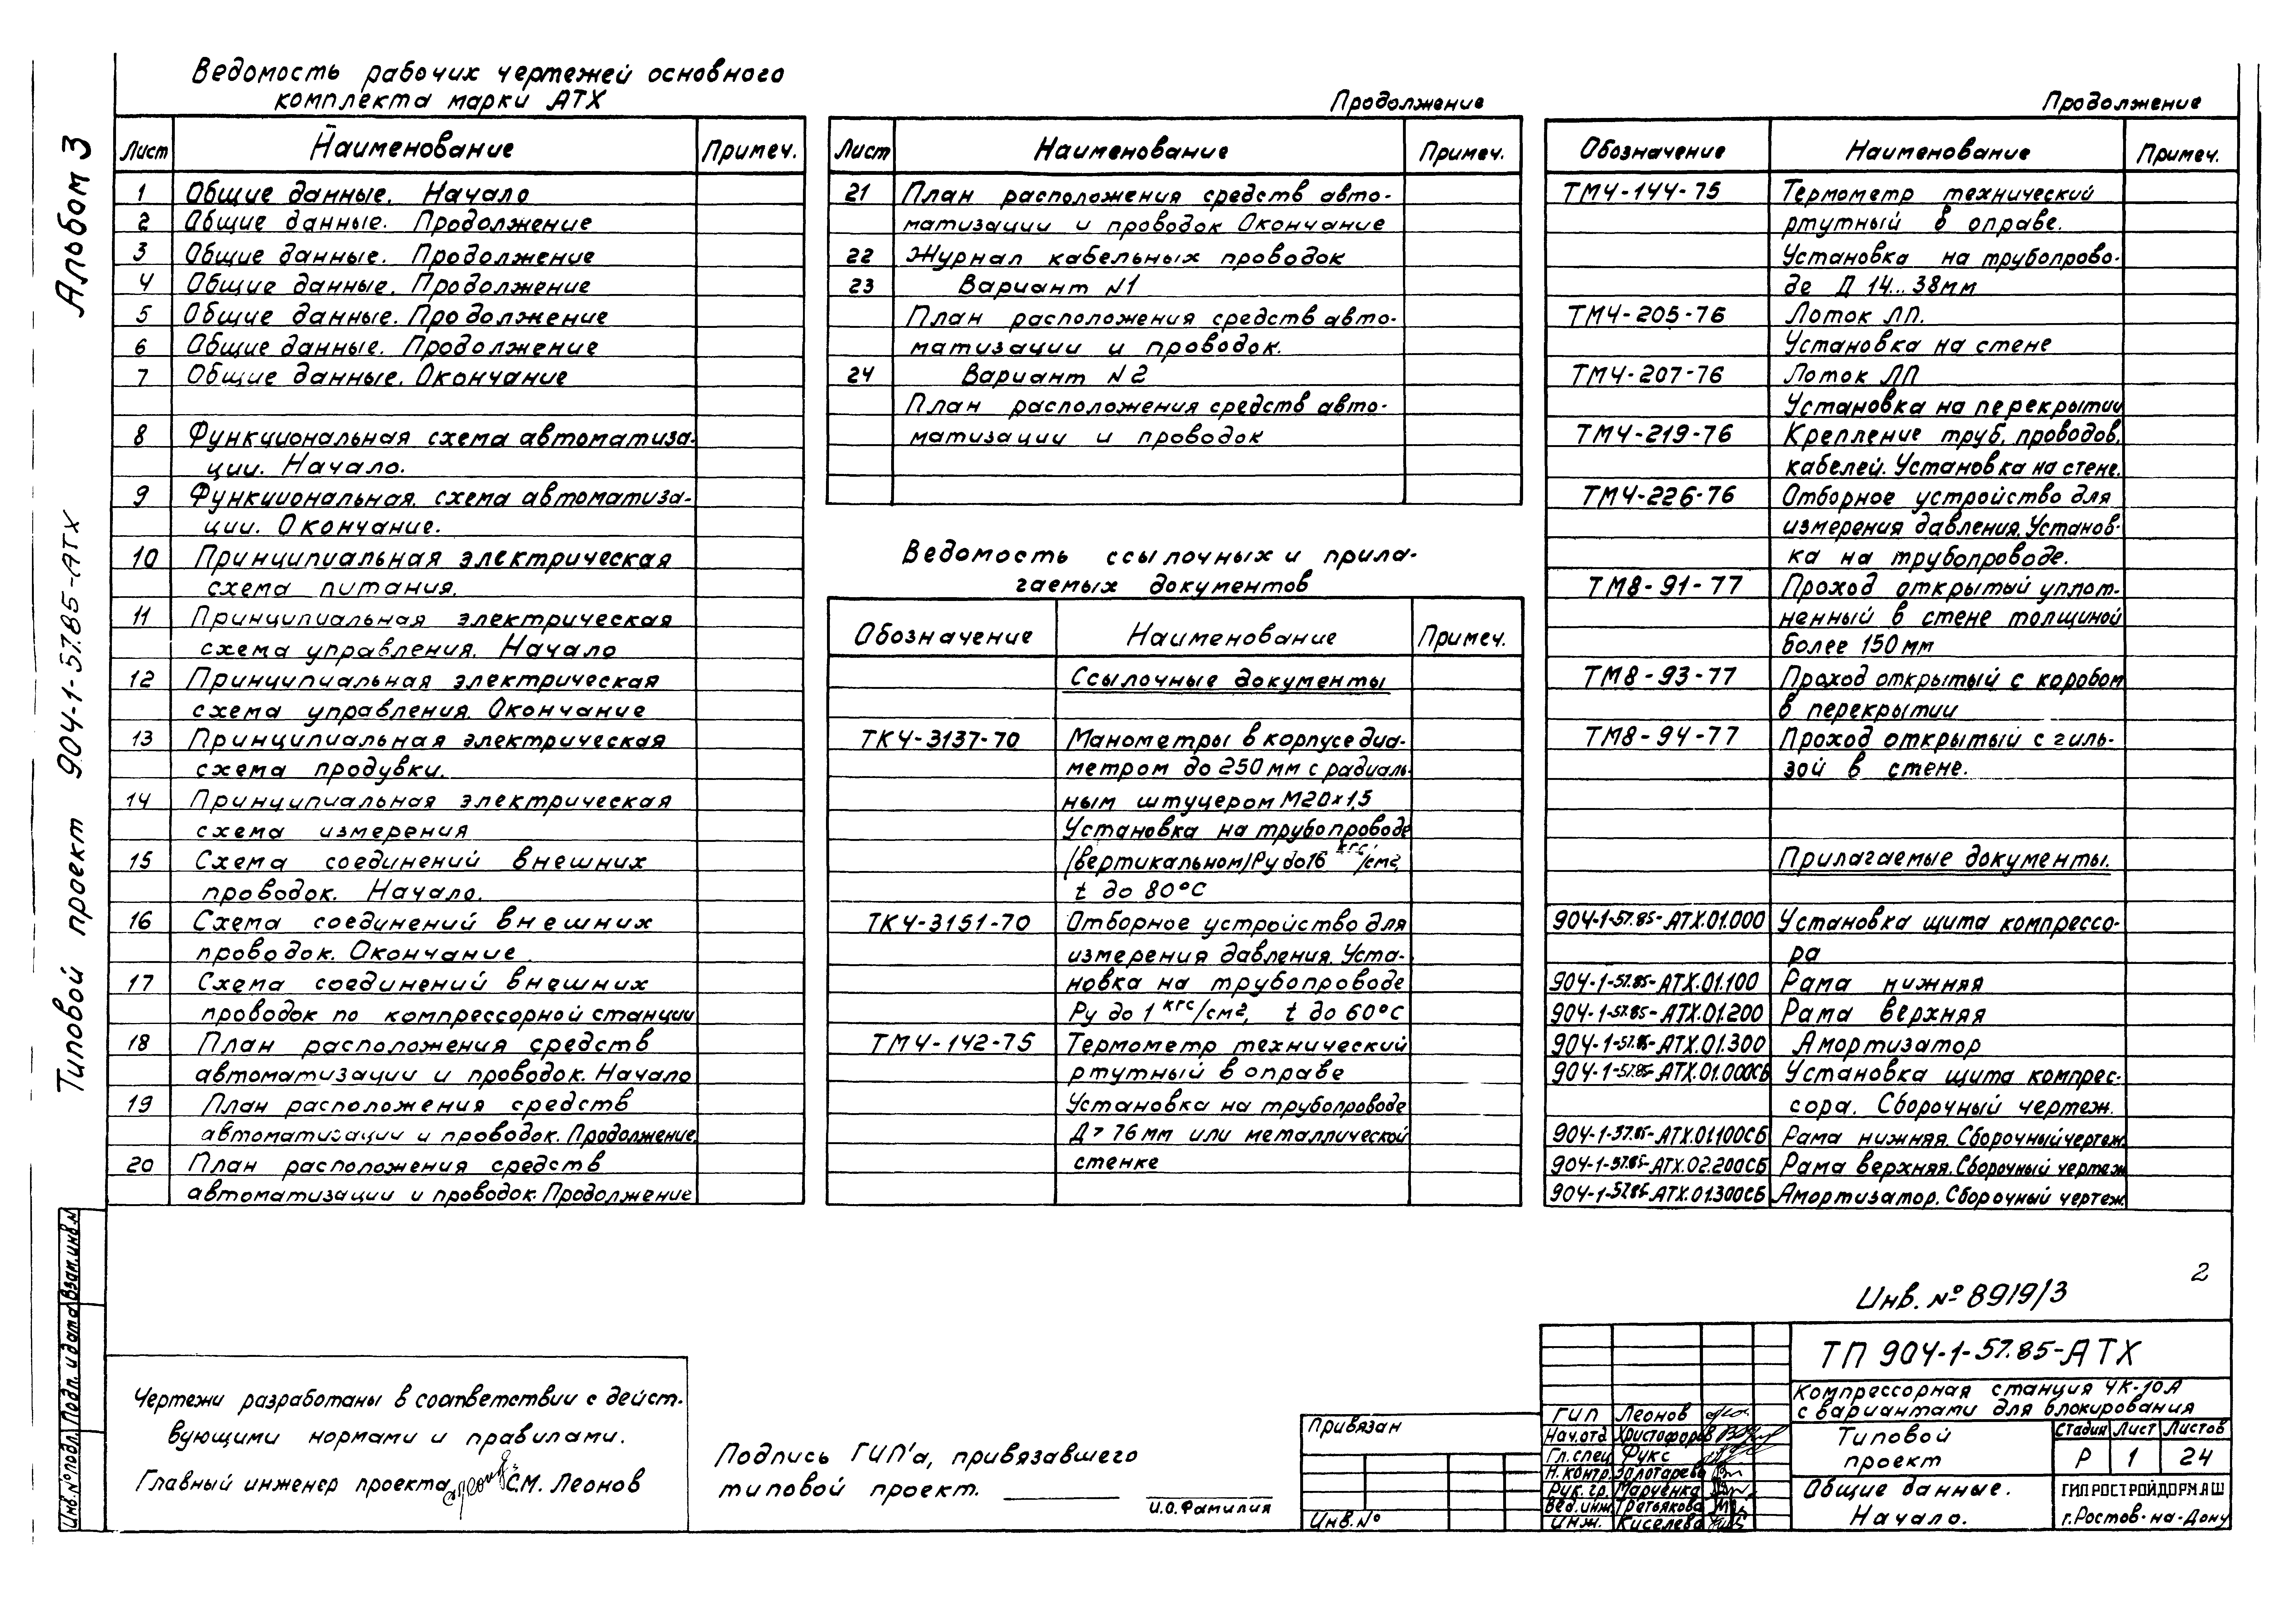 Альбом 3
Типовой проект 904-1-57.85-АТХ
Ведомость рабочих чертежей основного
комплекта марки АТХ
Лист Наименование Примеч.
1 Общие данные. Начало
2 Общие данные. Продолжение
3 Общие данные. Продолжение
4 Общие данные. Продолжение
5 Общие данные. Продолжение
6 Общие данные. Продолжение
7 Общие данные. Окончание
8 Функциональная схема автоматиза-
ции. Начало.
9 Функциональная схема автоматиза-
ции. Окончание.
10 Принципиальная электрическая
схема питания.
11 Принципиальная электрическая
схема управления. Начало
12 Принципиальная электрическая
схема управления. Окончание
13 Принципиальная электрическая
схема продувки.
14 Принципиальная электрическая
схема измерения
15 Схема соединений внешних
проводок. Начало.
16 Схема соединений внешних
проводок. Окончание
17 Схема соединений внешних
проводок по компрессорной станции
18 План расположения средств
автоматизации и проводок. Начало
19 План расположения средств
автоматизации и проводок. Продолжение
20 План расположения средств
автоматизации и проводок. Продолжение
Продолжение
Лист Наименование Примеч.
21 План расположения средств авто-
матизации и проводок Окончание
22 Журнал кабельных проводок
23 Вариант N1
План расположения средств авто-
матизации и проводок.
24 Вариант N2
План расположения средств авто-
матизации и проводок
Ведомость ссылочных и прила-
гаемых документов
Обозначение Наименование Примеч.
Ссылочные документы
ТК4-3137-70 Манометры в корпусе диа-
метром до 250 мм с радиаль-
ным штуцером М20×1,5
Установка на трубопроводе
/вертикальном/ Ру до 16 кгс/см²,
t до 80°С
ТК4-3151-70 Отборное устройство для
измерения давления. Уста-
новка на трубопроводе
Ру до 1 кгс/см², t до 60°С
ТМ4-142-75 Термометр технический
ртутный в оправе
Установка на трубопроводе
Д > 76 мм или металлической
стенке
Продолжение
Обозначение Наименование Примеч.
ТМ4-144-75 Термометр технический
ртутный в оправе.
Установка на трубопрово-
де Д 14...38мм
ТМ4-205-76 Лоток ЛП.
Установка на стене
ТМ4-207-76 Лоток ЛП
Установка на перекрытии
ТМ4-219-76 Крепление труб, проводов,
кабелей. Установка на стене.
ТМ4-226-76 Отборное устройство для
измерения давления. Установ-
ка на трубопроводе.
ТМ8-91-77 Проход открытый уплот-
ненный в стене толщиной
более 150 мм
ТМ8-93-77 Проход открытый с коробом
в перекрытии
ТМ8-94-77 Проход открытый с гиль-
зой в стене.
Прилагаемые документы.
904-1-57.85-АТХ.01.000 Установка щита компрессо-
ра
904-1-57.85-АТХ.01.100 Рама нижняя
904-1-57.85-АТХ.01.200 Рама верхняя
904-1-57.85-АТХ.01.300 Амортизатор
904-1-57.85-АТХ.01.000СБ Установка щита компрес-
сора. Сборочный чертеж.
904-1-57.85-АТХ.01.100СБ Рама нижняя. Сборочный чертеж
904-1-57.85-АТХ.02.200СБ Рама верхняя. Сборочный чертеж
904-1-57.85-АТХ.01.300СБ Амортизатор. Сборочный чертеж
2
Инв. № 8919/3
Инв. № подл. Подп. и дата Взам. инв. №
Чертежи разработаны в соответствии с дейст-
вующими нормами и правилами.
Главный инженер проекта С.М. Леонов
Подпись ГИП'а, привязавшего
типовой проект.
И.О. Фамилия
Привязан
Инв. №
ТП 904-1-57.85-АТХ
Компрессорная станция 4К-10А
с вариантами для блокирования
ГИП Леонов
Нач.отд Христофоров
Гл.спец Фукс
Н.контр. Золотарева
Рук.гр. Марченко
Вед.инж Третьякова
Инж. Киселева
Типовой
проект
Стадия Лист Листов
Р 1 24
Общие данные.
Начало.
ГИПРОСТРОЙДОРМАШ
г.Ростов-на-Дону